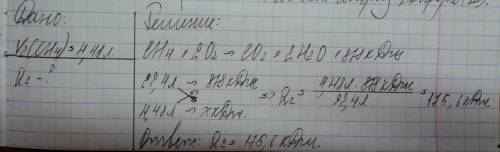 Дано:
Решение:
V₂(CH4) = 4,48л.
CH4 + 2O2 → CO2 + 2H2O + 878 кДж
Q2 - ?
22,4л → 878 кДж
4,48л → x кДж.
=> Q2 = 4,48л · 878 кДж / 22,4л = 175,6 кДж
Ответ: Q2 = 175,6 кДж.